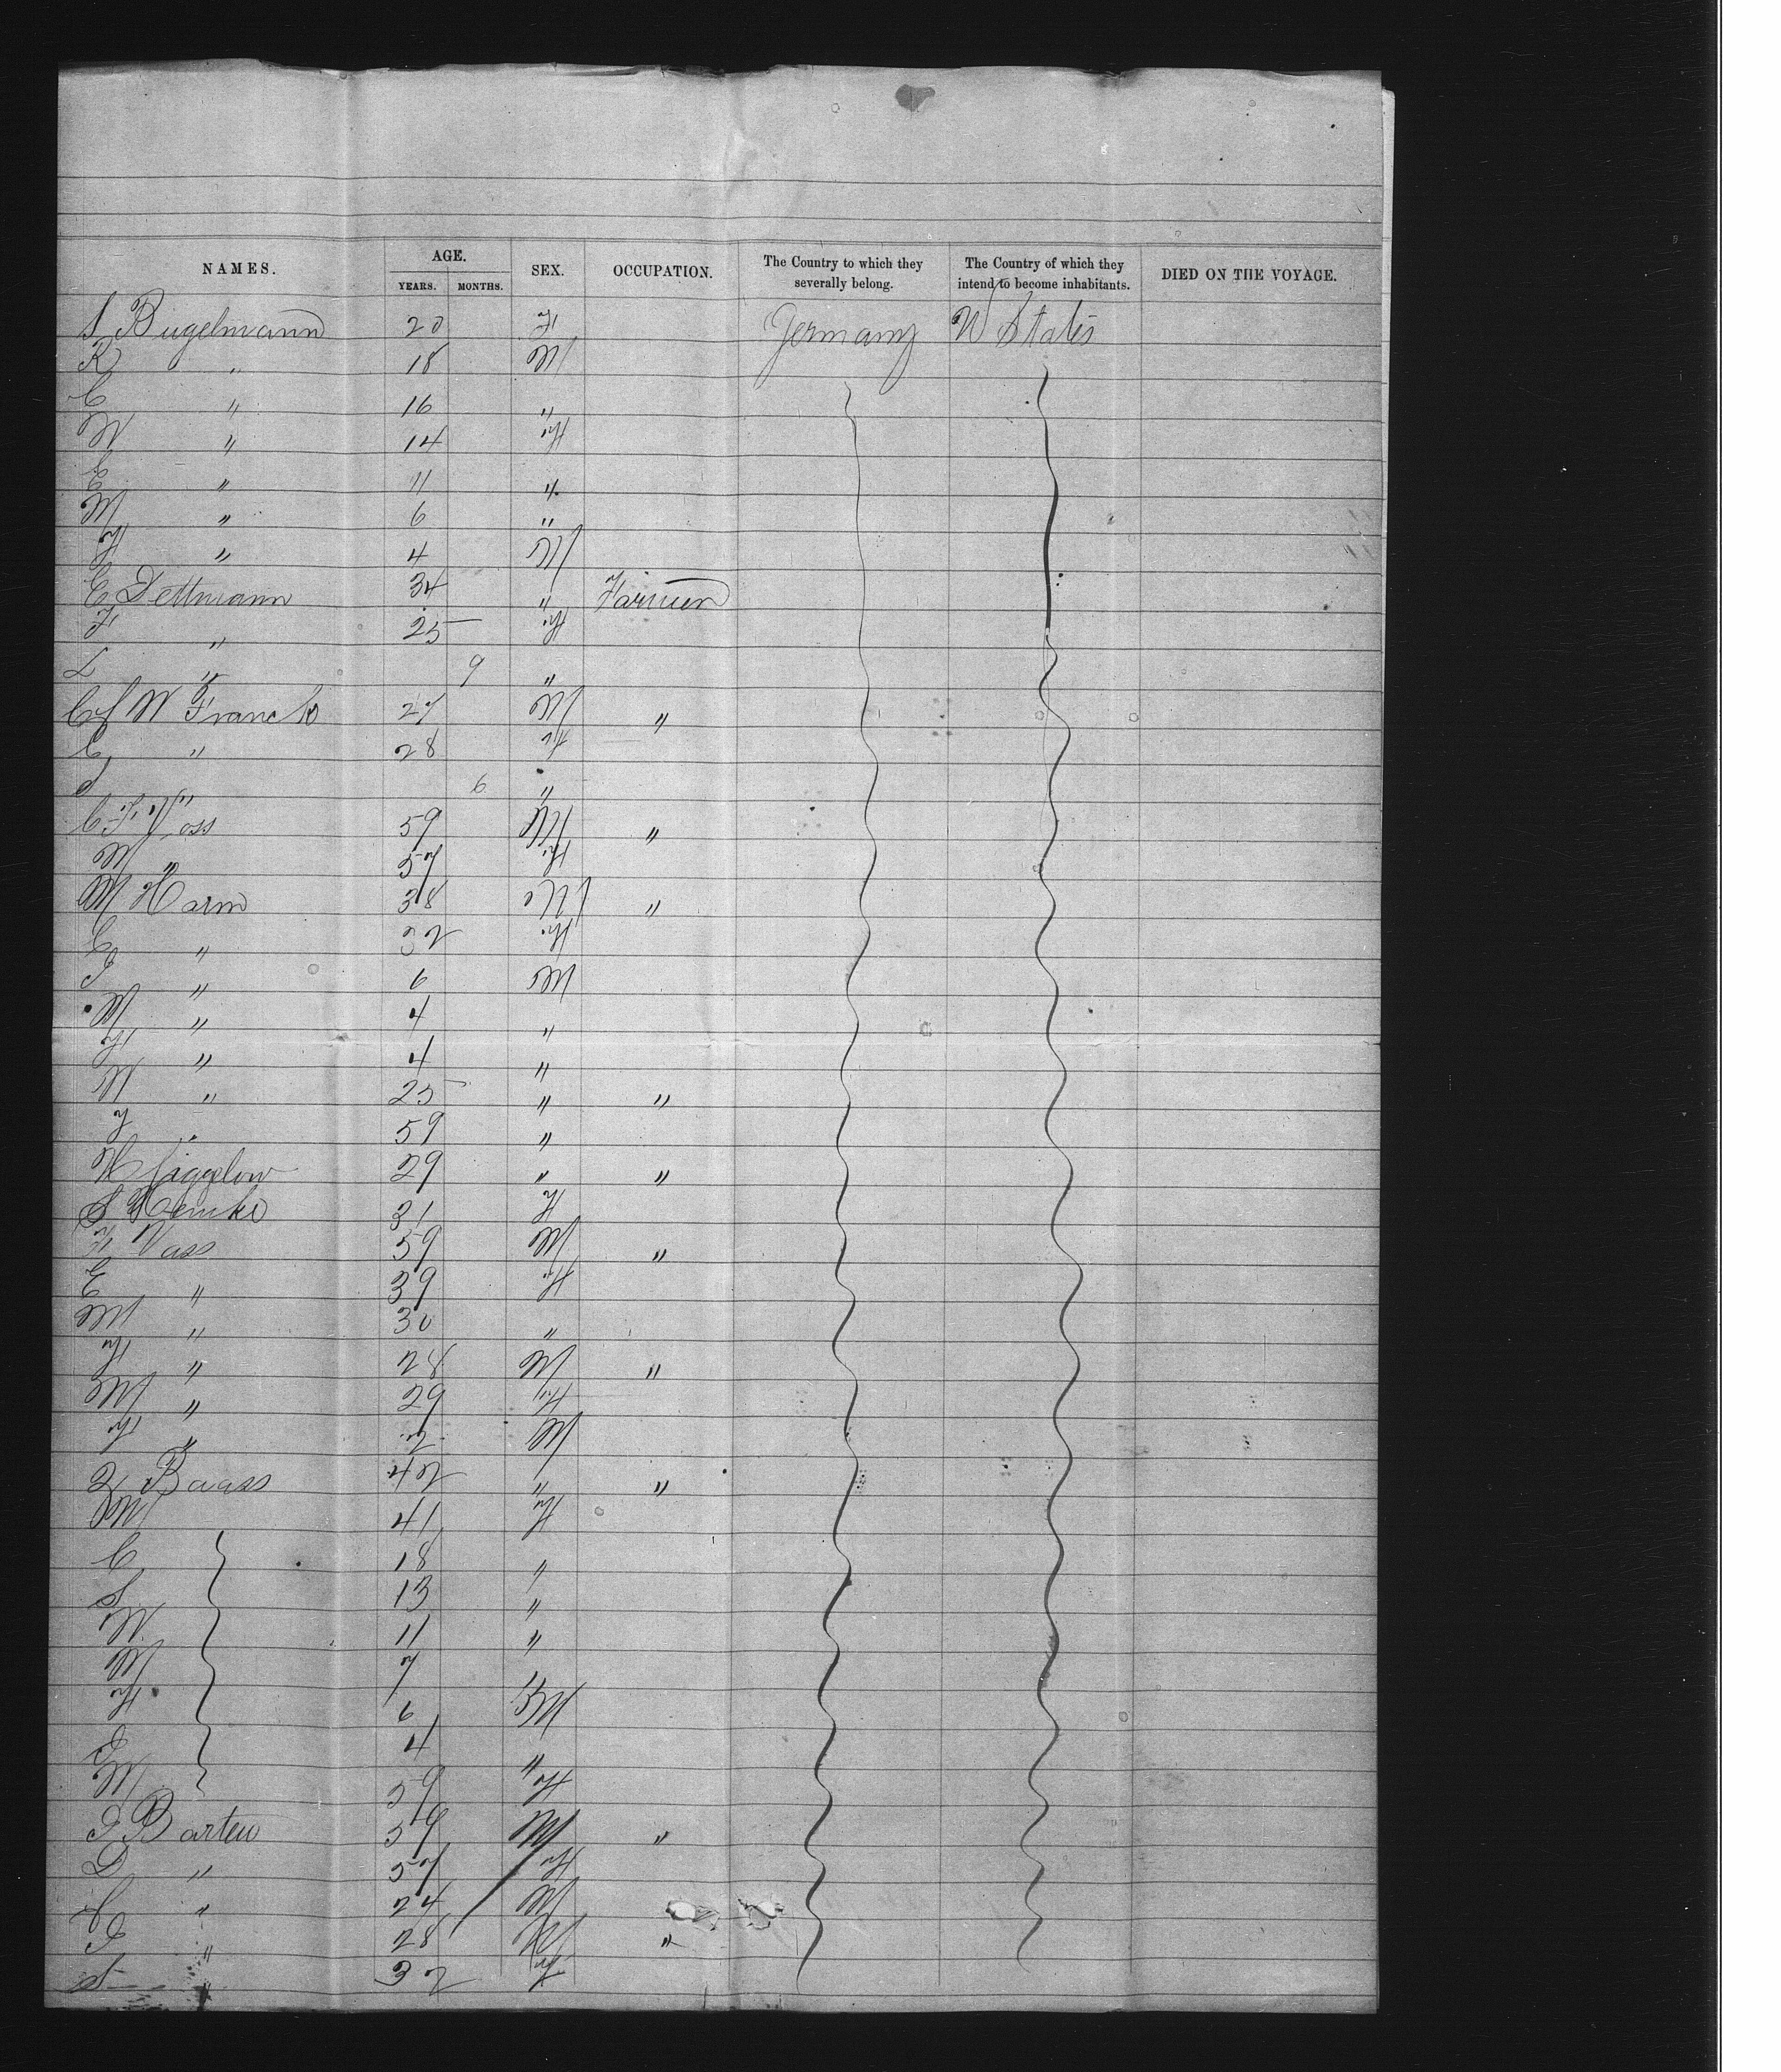 NAMES. AGE. YEARS. MONTHS. SEX. OCCUPATION. The Country to which they severally belong. The Country of which they intend to become inhabitants. DIED ON THE VOYAGE.
S Bugelmann 20 F Germany U States
K " 18 M
C " 16 "
W " 14 F
E " 11 "
M " 6 "
F " 4 M
C Dettmann 34 " Farmer
F " 25 F
L " 9 "
C J W Franck 27 M "
C " 28 F
" 6 "
C F Voss 59 M "
M " 57 F
M Harm 38 M "
C " 32 F
J " 6 M
M " 4 "
F " 4 "
W " 25 " "
F " 59 "
H 29 " "
S 31 F
F Vass 59 M "
E " 39 F
M " 30 "
F " 28 M "
M " 29 F
F " 2 M
Baass 42 " "
M 41 F
C 18 "
S 13 "
W 11 "
M 7
F 6 M
J 4 "
M 59 F
J Barten 59 M "
D " 57 F
" 24 M
J " 28 M "
S " 32 F